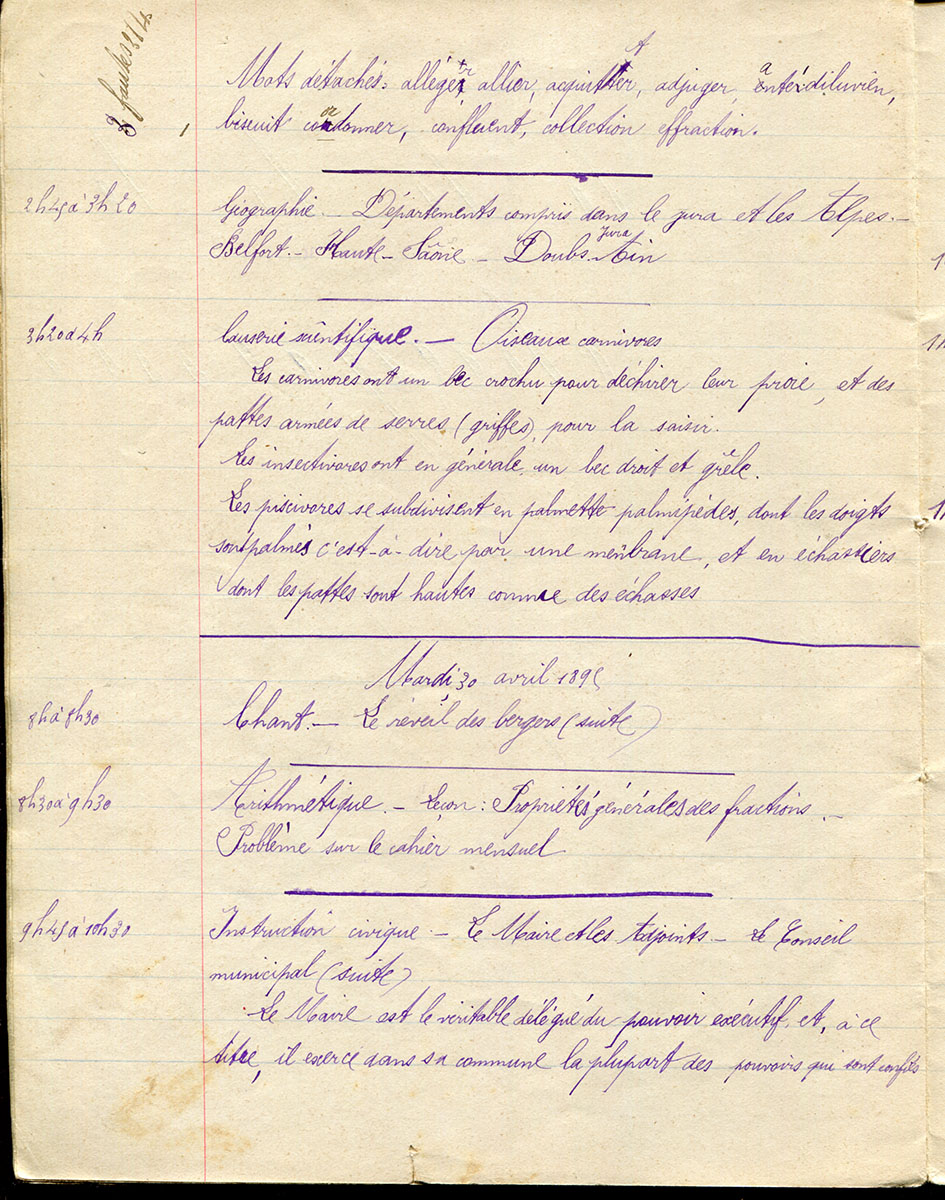 3 fautes 3/4
Mots détachés: alléger, allier, acquitter, adjuger, antédiluvien,
biscuit coordonner, confluent, collection effraction.
2h45 à 3h20
Géographie. — Départements compris dans le jura et les Alpes. —
Belfort. — Haute-Saône — Doubs - Jura Ain
3h20 à 4h
Causerie scientifique. — Oiseaux carnivores
Les carnivores ont un bec crochu pour déchirer leur proie, et des
pattes armées de serres (griffes), pour la saisir.
Les insectivores ont en générale un bec droit et grêle.
Les piscivores se subdivisent en palmette palmipèdes, dont les doigts
sont palmés c'est-à-dire par une membrane, et en échassiers
dont les pattes sont hautes comme des échasses
Mardi 30 avril 1895
8h à 8h30
Chant. — Le réveil des bergers (suite)
8h30 à 9h30
Arithmétique. — Leçon: Propriétés générales des fractions. —
Problème sur le cahier mensuel
9h45 à 10h30
Instruction civique — Le Maire et les Adjoints — Le Conseil
municipal (suite)
Le Maire est le véritable délégué du pouvoir exécutif et, à ce
titre, il exerce dans sa commune la plupart des pouvoirs qui sont confiés